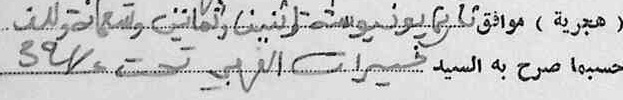 ( هجرية ) موافق ثاني يونيو سنة اثنين وثمانين وتسعمائة وألف
حسبما صرح به السيد خيرات الفهبي تحت